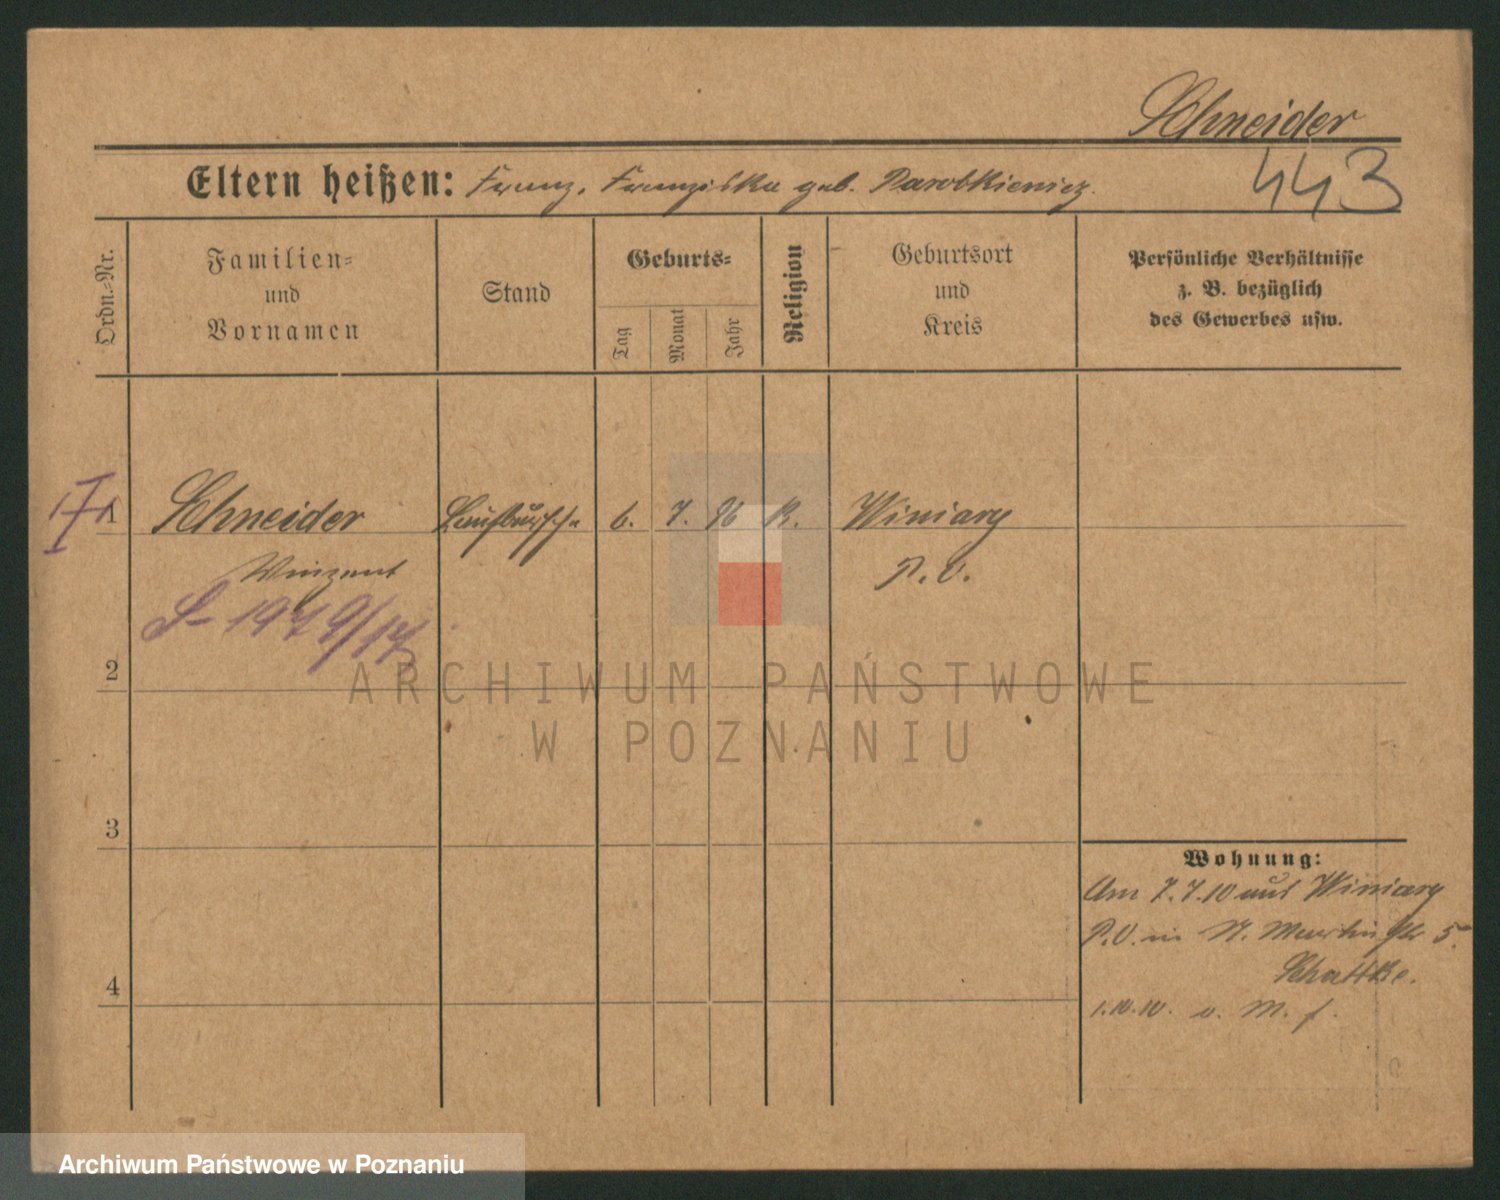 Schneider
443
Eltern heißen: Franz, Franziska geb. Parobkiewicz.
Ordn.-Nr.
Familien-
und
Vornamen
Stand
Geburts-
Tag
Monat
Jahr
Religion
Geburtsort
und
Kreis
Persönliche Verhältnisse
z. B. bezüglich
des Gewerbes usw.
1 Schneider Laufbursche 6. 7. 96 K. Winiary
Winzent P. O.
S- 1979/17
2
3
4
Wohnung:
Am 7.7.10 aus Winiary
P.O. in St. Martinstr 5.
Schattke.
1.10.10. v. M. f.
ARCHIWUM PAŃSTWOWE
W POZNANIU
Archiwum Państwowe w Poznaniu